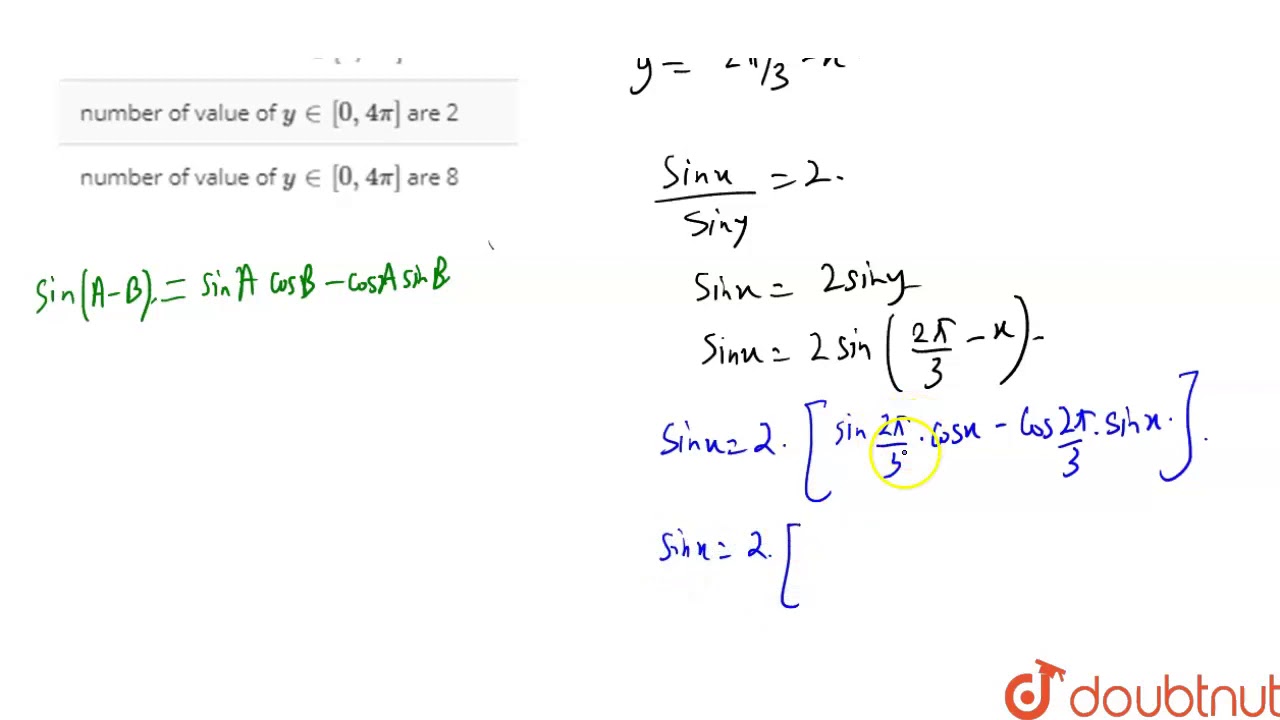 y = 2π/3 - x
number of value of y ∈ [0, 4π] are 2
number of value of y ∈ [0, 4π] are 8
sinx/siny = 2.
sin(A-B). = sinA cosB - cosA sinB
sinx = 2siny
sinx = 2sin(2π/3 - x) -
sinx = 2. [sin 2π/3 . cosx - cos 2π/3 . sinx.] .
sinx = 2. [
doubtnut